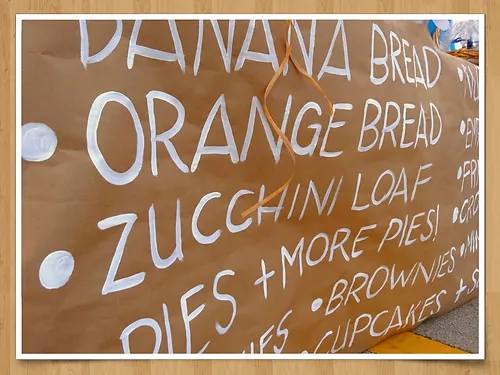 BANANA BREAD
• ORANGE BREAD
• ZUCCHINI LOAF
PIES + MORE PIES!
• BROWNIES
• CUPCAKES +